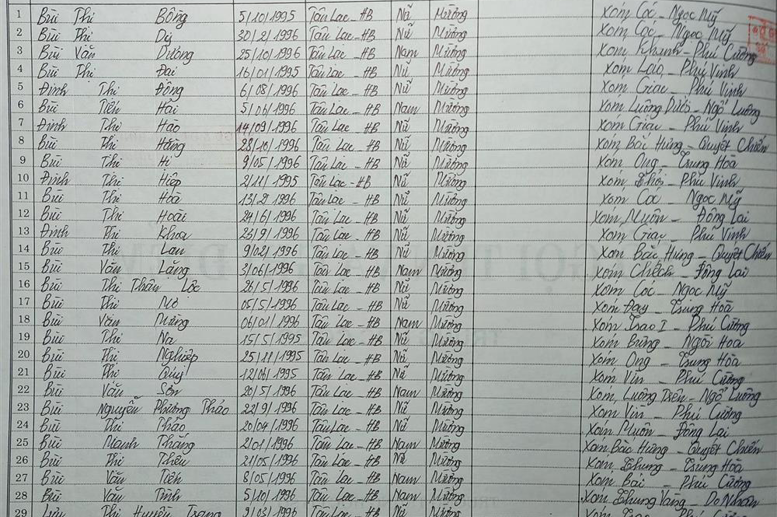 1 Bùi Thị Bồng 5/10/1995 Tân Lạc - HB Nữ Mường Xóm Cóc - Ngọc Mỹ
2 Bùi Thị Dị 30/2/1996 Tân Lạc - HB Nữ Mường Xóm Cóc - Ngọc Mỹ
3 Bùi Văn Dương 25/10/1996 Tân Lạc - HB Nam Mường Xóm Khanh - Phú Cường
4 Bùi Thị Đai 16/01/1995 Tân Lạc - HB Nữ Mường Xóm Lao - Phú Vinh
5 Đinh Thị Đông 6/08/1996 Tân Lạc - HB Nữ Mường Xóm Giac - Phú Vinh
6 Bùi Tiến Hải 5/06/1996 Tân Lạc - HB Nam Mường Xóm Luông Dưới - Ngổ Luông
7 Đinh Thị Hảo 14/09/1996 Tân Lạc - HB Nữ Mường Xóm Giac - Phú Vinh
8 Bùi Thị Hằng 28/10/1996 Tân Lạc - HB Nữ Mường Xóm Bắc Hưng - Quyết Chiến
9 Bùi Thị Hi 9/05/1996 Tân Lạc - HB Nữ Mường Xóm Ong - Trung Hoà
10 Đinh Thị Hiệp 2/11/1995 Tân Lạc - HB Nữ Mường Xóm - Phú Vinh
11 Bùi Thị Hoà 13/2/1996 Tân Lạc - HB Nữ Mường Xóm Cóc - Ngọc Mỹ
12 Bùi Thị Hoài 24/6/1996 Tân Lạc - HB Nữ Mường Xóm Muôn - Đông Lai
13 Đinh Thị Khoa 23/9/1996 Tân Lạc - HB Nữ Mường Xóm Giac - Phú Vinh
14 Bùi Thị Lan 9/02/1996 Tân Lạc - HB Nữ Mường Xóm Bắc Hưng - Quyết Chiến
15 Bùi Văn Lăng 3/06/1996 Tân Lạc - HB Nam Mường Xóm Chiếch - Đông Lai
16 Bùi Thị Thân Lộc 26/5/1996 Tân Lạc - HB Nữ Mường Xóm Cóc - Ngọc Mỹ
17 Bùi Thị 05/5/1996 Tân Lạc - HB Nữ Mường Xóm Đay - Trung Hoà
18 Bùi Văn 06/01/1996 Tân Lạc - HB Nam Mường Xóm Trao I - Phú Cường
19 Bùi Thị Na 15/5/1995 Tân Lạc - HB Nữ Mường Xóm Bưng - Ngòi Hoa
20 Bùi Thị Nghiệp 25/11/1995 Tân Lạc - HB Nữ Mường Xóm Ong - Trung Hoà
21 Bùi Thị Quý Tân Lạc - HB Nữ Mường Xóm Vìn - Phú Cường
22 Bùi Văn Sơn 20/5/1996 Tân Lạc - HB Nam Mường Xóm Luông Diên - Ngổ Luông
23 Bùi Nguyễn Phương Thảo 22/9/1996 Tân Lạc - HB Nữ Mường Xóm Vìn - Phú Cường
24 Bùi Thị Thảo 20/04/1996 Tân Lạc - HB Nữ Mường Xóm Muôn - Đông Lai
25 Bùi Mạnh Thắng 2/01/1996 Tân Lạc - HB Nam Mường Xóm Bắc Hưng - Quyết Chiến
26 Bùi Thị Thêu 21/05/1996 Tân Lạc - HB Nữ Mường Xóm Thung - Trung Hoà
27 Bùi Văn Tích 8/05/1996 Tân Lạc - HB Nam Mường Xóm Bái - Phú Cường
28 Bùi Văn Tính 5/10/1996 Tân Lạc - HB Nam Mường Xóm Thung Vàng - Do Nhân
29 Thị Huyền Trang 9/03/1996 Tân Lạc - HB Nữ Mường Xóm - Phú Cường